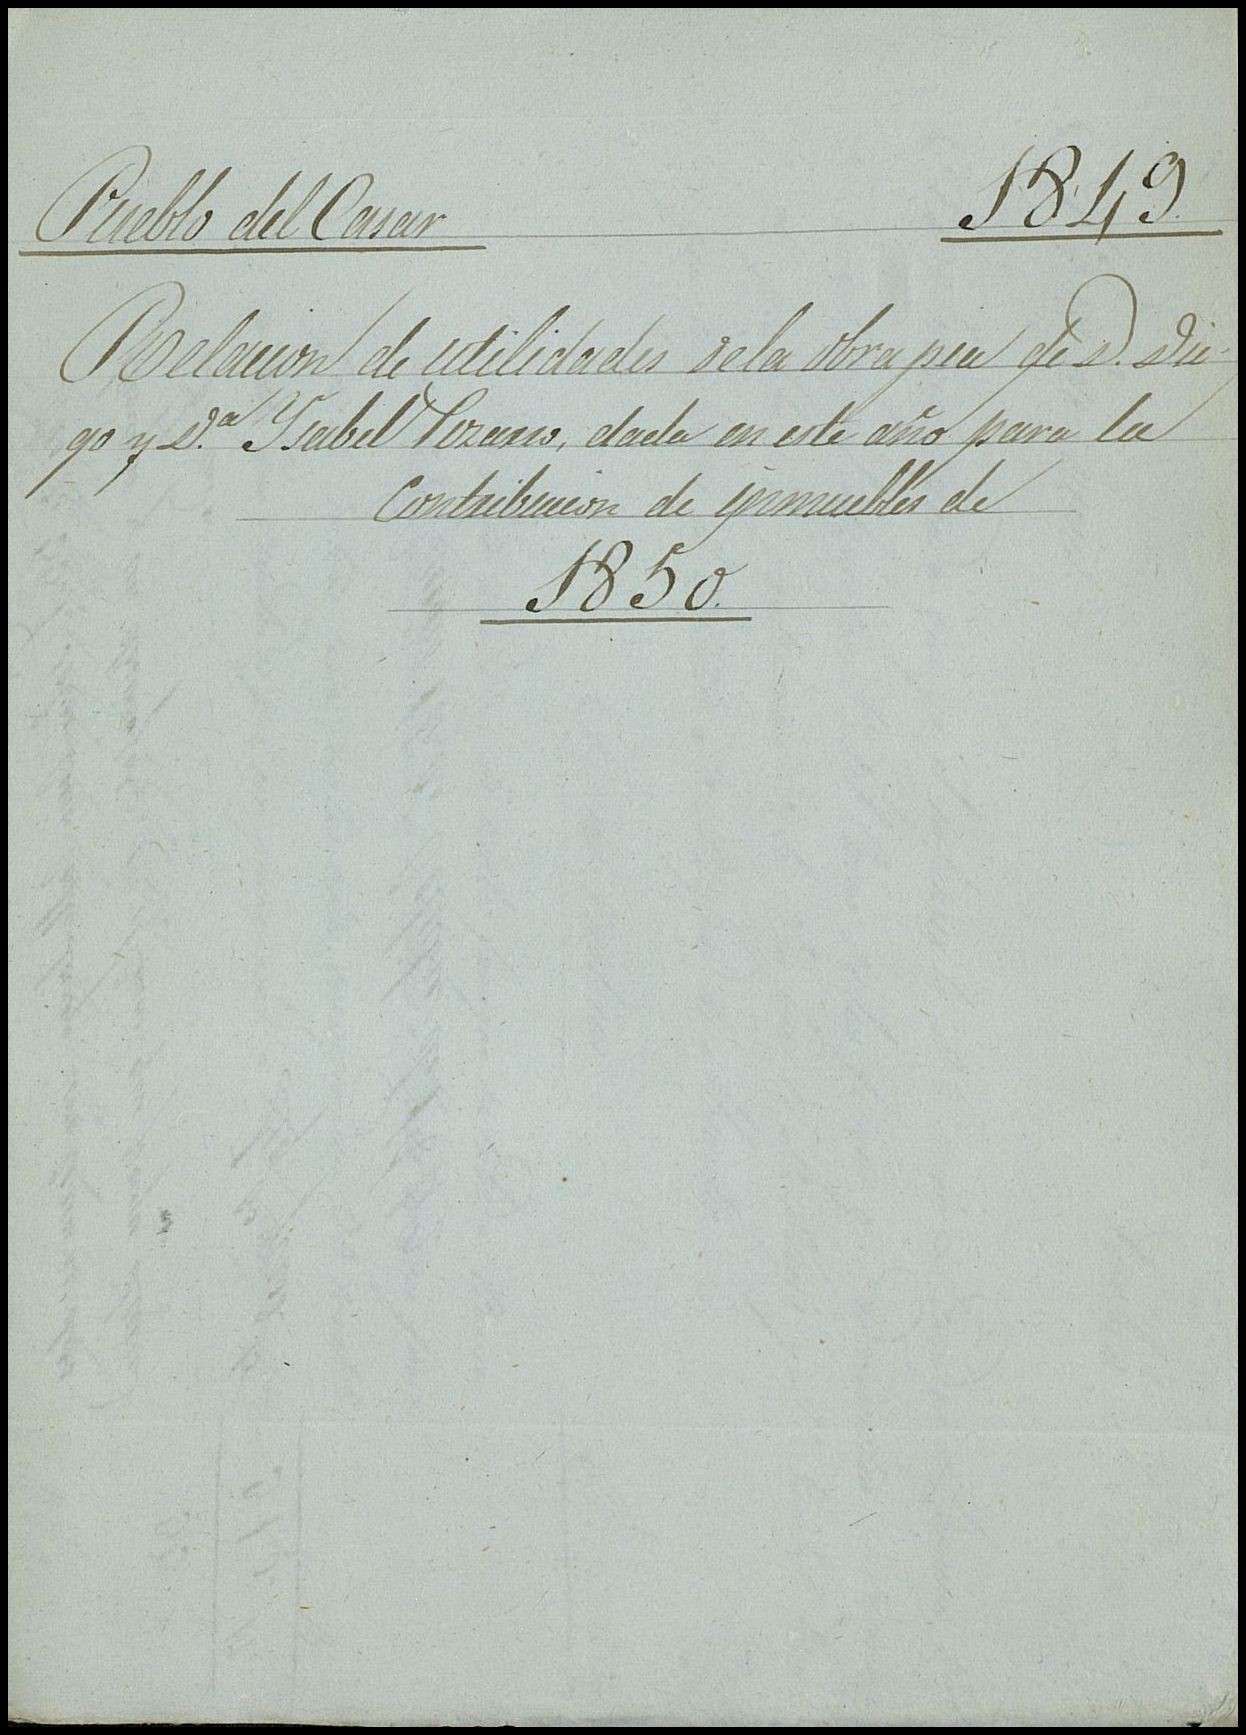 Pueblo del Casar 1849.
Relacion de utilidades de la obra pia de D. Die-
go y D.ª Ysabel Lozano, dada en este año para la
Contribucion de ynmuebles de
1850.